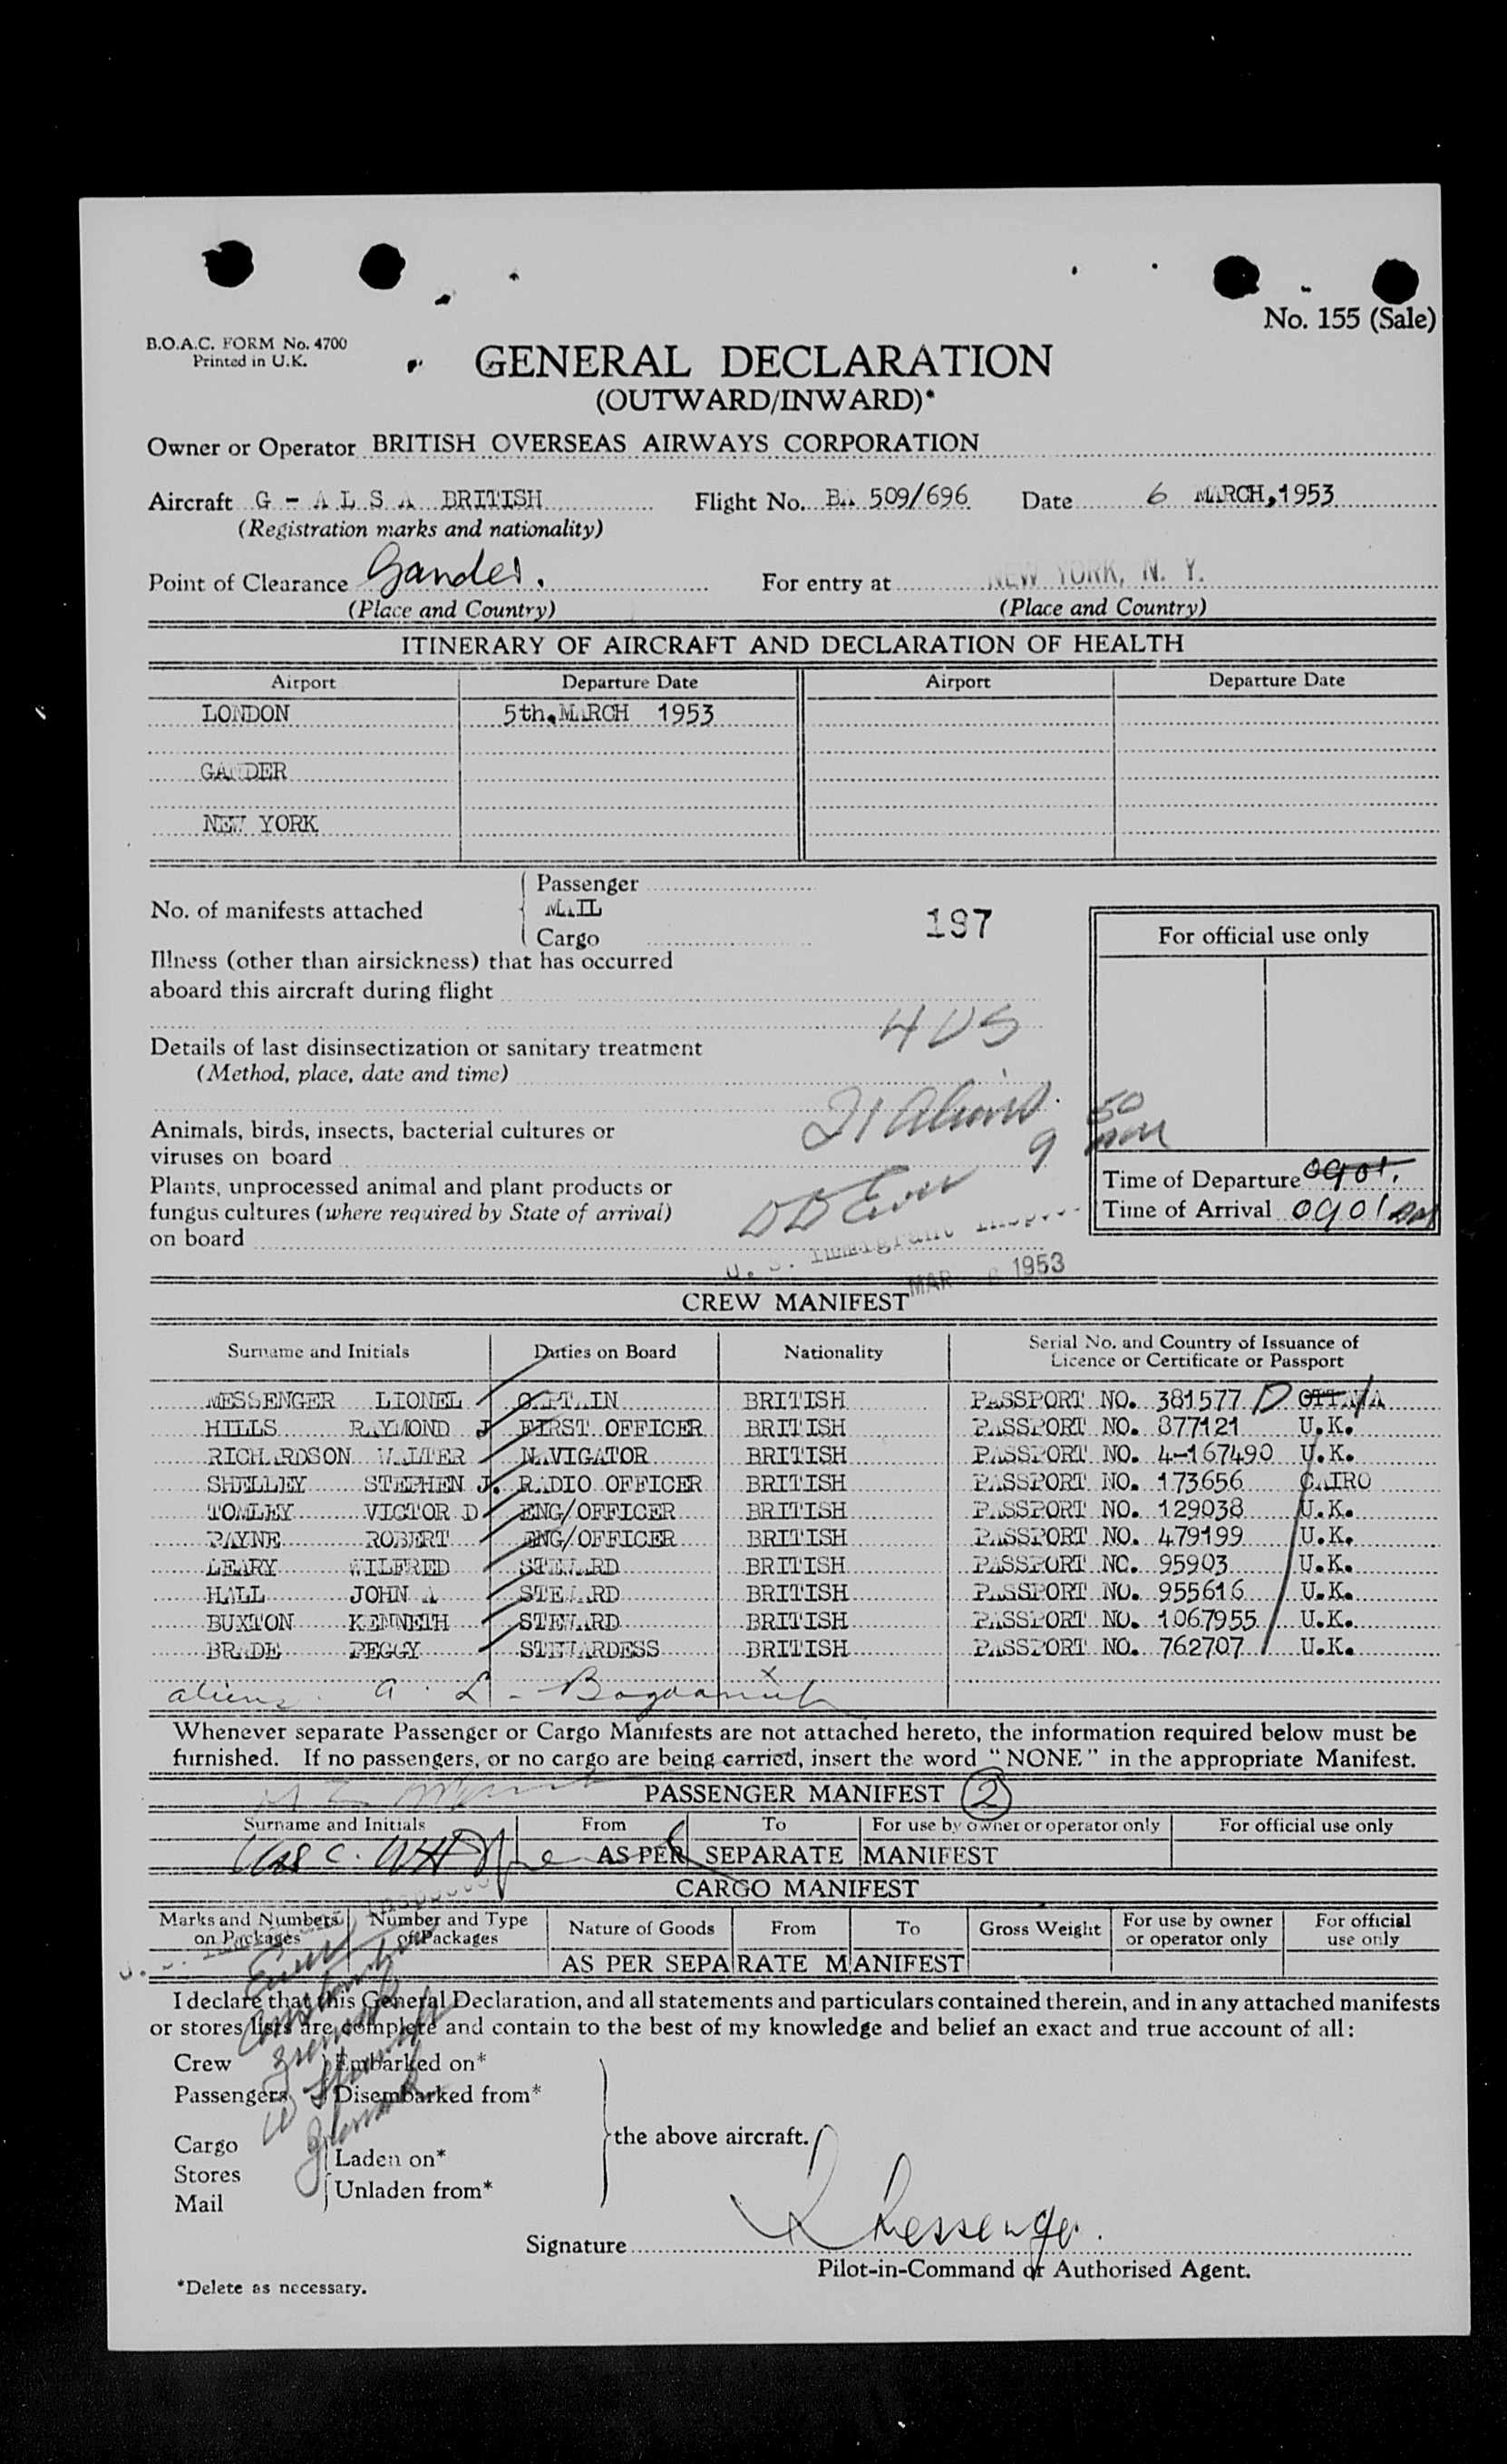 No. 155 (Sale)
B.O.A.C. FORM No. 4700
Printed in U.K.
GENERAL DECLARATION
(OUTWARD/INWARD)*
Owner or Operator BRITISH OVERSEAS AIRWAYS CORPORATION
Aircraft G - A L S A BRITISH Flight No. BA 509/696 Date 6 MARCH, 1953
(Registration marks and nationality)
Point of Clearance Gander. For entry at NEW YORK, N. Y.
(Place and Country) (Place and Country)
ITINERARY OF AIRCRAFT AND DECLARATION OF HEALTH
Airport Departure Date Airport Departure Date
LONDON 5th. MARCH 1953
GANDER
NEW YORK
Passenger
No. of manifests attached MAIL 197
Cargo
For official use only
Illness (other than airsickness) that has occurred
aboard this aircraft during flight
4 US
Details of last disinsectization or sanitary treatment
(Method, place, date and time)
21 aliens
Animals, birds, insects, bacterial cultures or
viruses on board 9 50
Plants, unprocessed animal and plant products or
fungus cultures (where required by State of arrival)
on board
Time of Departure 0901.
Time of Arrival 0901 AM
U. S. Immigrant
MAR 6 1953
CREW MANIFEST
Surname and Initials Duties on Board Nationality Serial No. and Country of Issuance of
Licence or Certificate or Passport
MESSENGER LIONEL CAPTAIN BRITISH PASSPORT NO. 381577 OTTAWA
HILLS RAYMOND J FIRST OFFICER BRITISH PASSPORT NO. 877121 U.K.
RICHARDSON WALTER NAVIGATOR BRITISH PASSPORT NO. 4-167490 U.K.
SHELLEY STEPHEN J. RADIO OFFICER BRITISH PASSPORT NO. 173656 CAIRO
TOMLEY VICTOR D ENG/OFFICER BRITISH PASSPORT NO. 129038 U.K.
PAYNE ROBERT ENG/OFFICER BRITISH PASSPORT NO. 479199 U.K.
LEARY WILFRED STEWARD BRITISH PASSPORT NO. 95903 U.K.
HALL JOHN A STEWARD BRITISH PASSPORT NO. 955616 U.K.
BUXTON KENNETH STEWARD BRITISH PASSPORT NO. 1067955 U.K.
BRADE PEGGY STEWARDESS BRITISH PASSPORT NO. 762707 U.K.
aliens. a. L -
Whenever separate Passenger or Cargo Manifests are not attached hereto, the information required below must be
furnished. If no passengers, or no cargo are being carried, insert the word "NONE" in the appropriate Manifest.
PASSENGER MANIFEST 2
Surname and Initials From To For use by owner or operator only For official use only
AS PER SEPARATE MANIFEST
CARGO MANIFEST
Marks and Numbers on Packages Number and Type of Packages Nature of Goods From To Gross Weight For use by owner or operator only For official use only
AS PER SEPARATE MANIFEST
I declare that this General Declaration, and all statements and particulars contained therein, and in any attached manifests
or stores lists are complete and contain to the best of my knowledge and belief an exact and true account of all:
Crew Embarked on*
Passengers Disembarked from*
the above aircraft.
Cargo Laden on*
Stores
Mail Unladen from*
Signature L Messenger.
Pilot-in-Command or Authorised Agent.
*Delete as necessary.